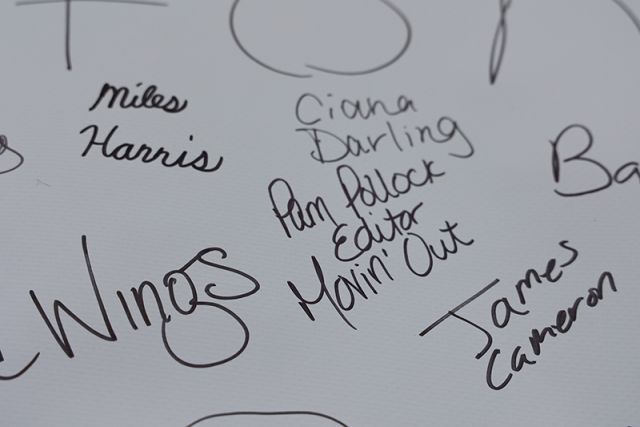 Miles
Harris
Ciana
Darling
Pam Pollock
Editor
Movin' Out
Ba
Wings
James
Cameron